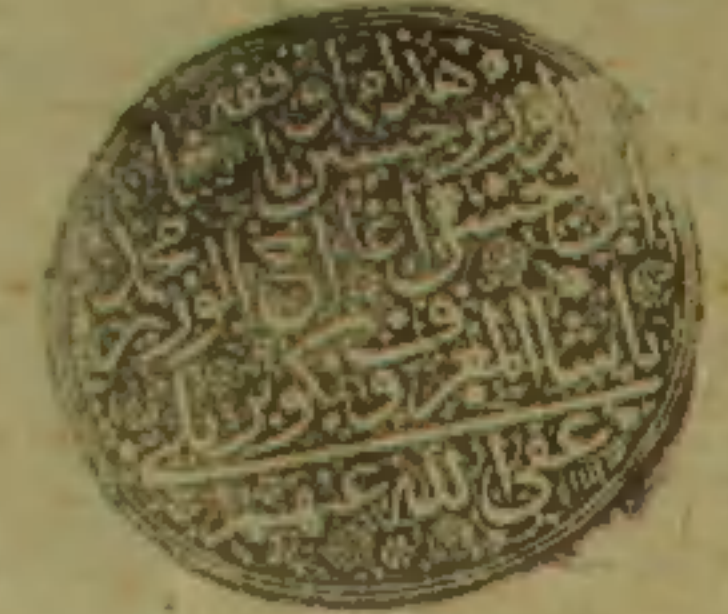 هذا مما وقفه
الوزير حسين باشا
ابن حسن آغا اخ الوزير محمد
باشا المعروف بكوبريلى
عفى الله عنهم